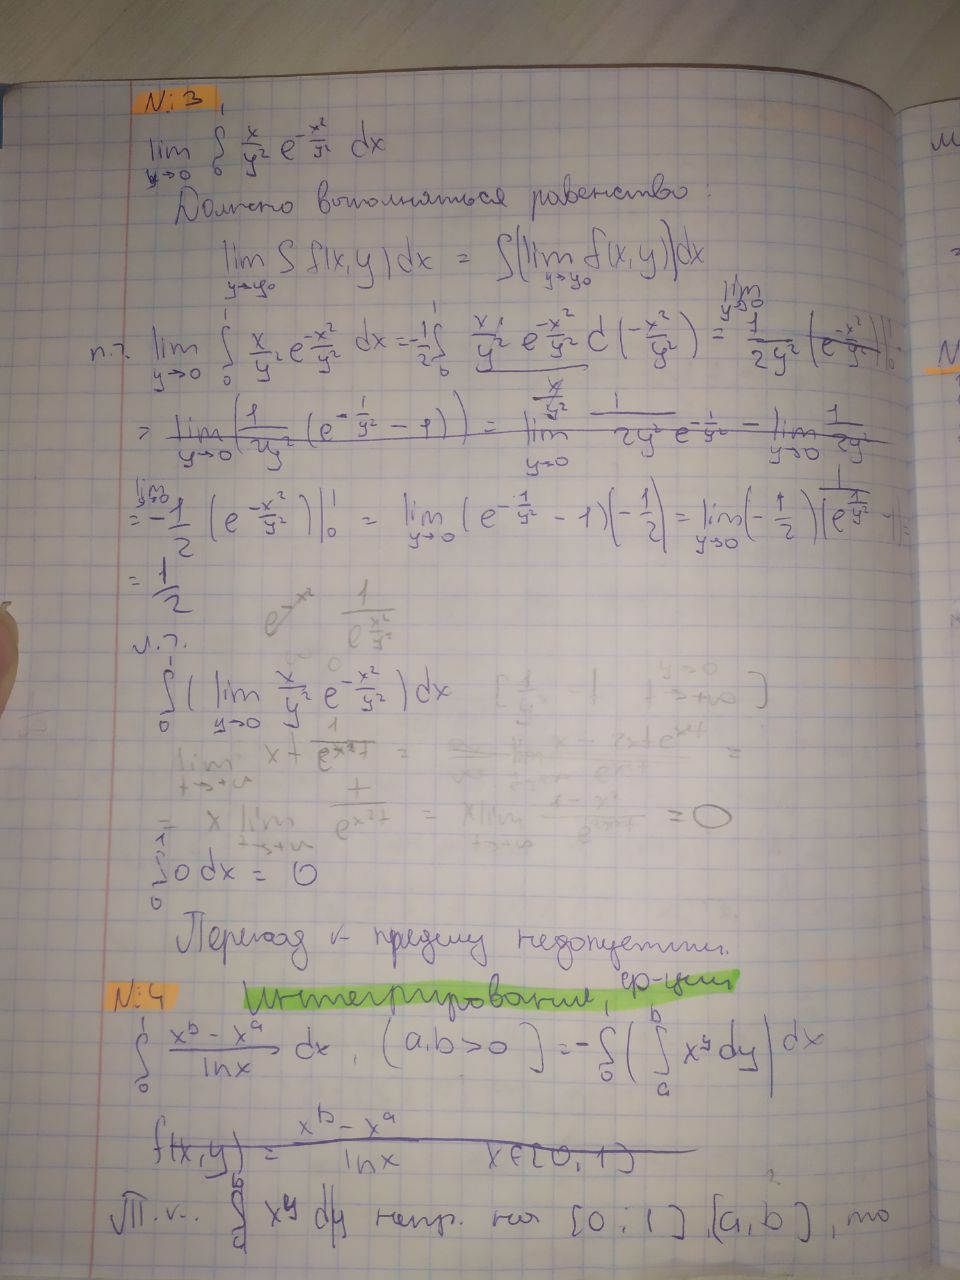 №3
lim y→0 ∫₀¹ x/y² e^(-x²/y²) dx
Должно выполняться равенство:
lim y→y₀ ∫ f(x,y) dx = ∫(lim y→y₀ f(x,y))dx
п.ч. lim y→0 ∫₀¹ x/y² e^(-x²/y²) dx = -1/2 ∫₀¹ x/y² e^(-x²/y²) d(-x²/y²) = lim y→0 1/2y² (e^(-x²/y²))|₀¹
> lim y→0 (1/2y² (e^(-1/y²) - 1)) = lim y→0 1/2y² e^(1/y²) - lim y→0 1/2y²
= lim y→0 -1/2 (e^(-x²/y²))|₀¹ = lim y→0 (e^(-1/y²) - 1)(-1/2) = lim y→0 (-1/2)(1/e^(1/y²) - 1) =
= 1/2
e^(-x²) 1/e^(x²/y²)
л.ч.
∫₀¹ (lim y→0 x/y² e^(-x²/y²)) dx
= 0
∫₀¹ 0 dx = 0
Переход к пределу недопустим.
№4 Интегрирование, ф-ции
∫₀¹ (x^b - x^a)/ln x dx, (a,b>0) = -∫₀¹ (∫ₐᵇ x^y dy) dx
f(x,y) = (x^b - x^a)/ln x x∈[0;1]
Т.к. ∫ₐᵇ x^y dy непр. на [0;1],[a,b], то